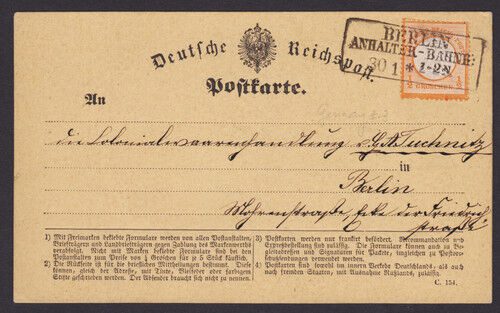 Deutsche Reichspost.
BERLIN
ANHALTER-BAHNH:
30 1 * 1-2N
½ GROSCHEN ½
Postkarte.
An
die Colonialwaarenhandlung v.
in
Berlin
Mohrenstraße, Ecke der Friedrich
straße
1) Mit Freimarken beklebte Formulare werden von allen Postanstalten,
Briefträgern und Landbriefträgern gegen Zahlung des Markenwerths
verabfolgt. Nicht mit Marken beklebte Formulare sind bei den
Postanstalten zum Preise von ½ Groschen für je 5 Stück käuflich.
2) Die Rückseite ist für die brieflichen Mittheilungen bestimmt. Diese
können, gleich der Adresse, mit Tinte, Bleifeder oder farbigem
Stifte geschrieben werden. Der Absender braucht sich nicht zu nennen.
3) Postkarten werden nur frankirt befördert. Recommandation und
Expreßbestellung sind zulässig. Die Formulare können auch zu
gleitadressen und Signaturen für Paquete, ungleichen zu Postvor-
schußsendungen verwendet werden.
4) Postkarten sind sowohl im innern Verkehr Deutschlands, als auch
nach fremden Staaten, mit Ausnahme Rußlands, zulässig.
C. 154.